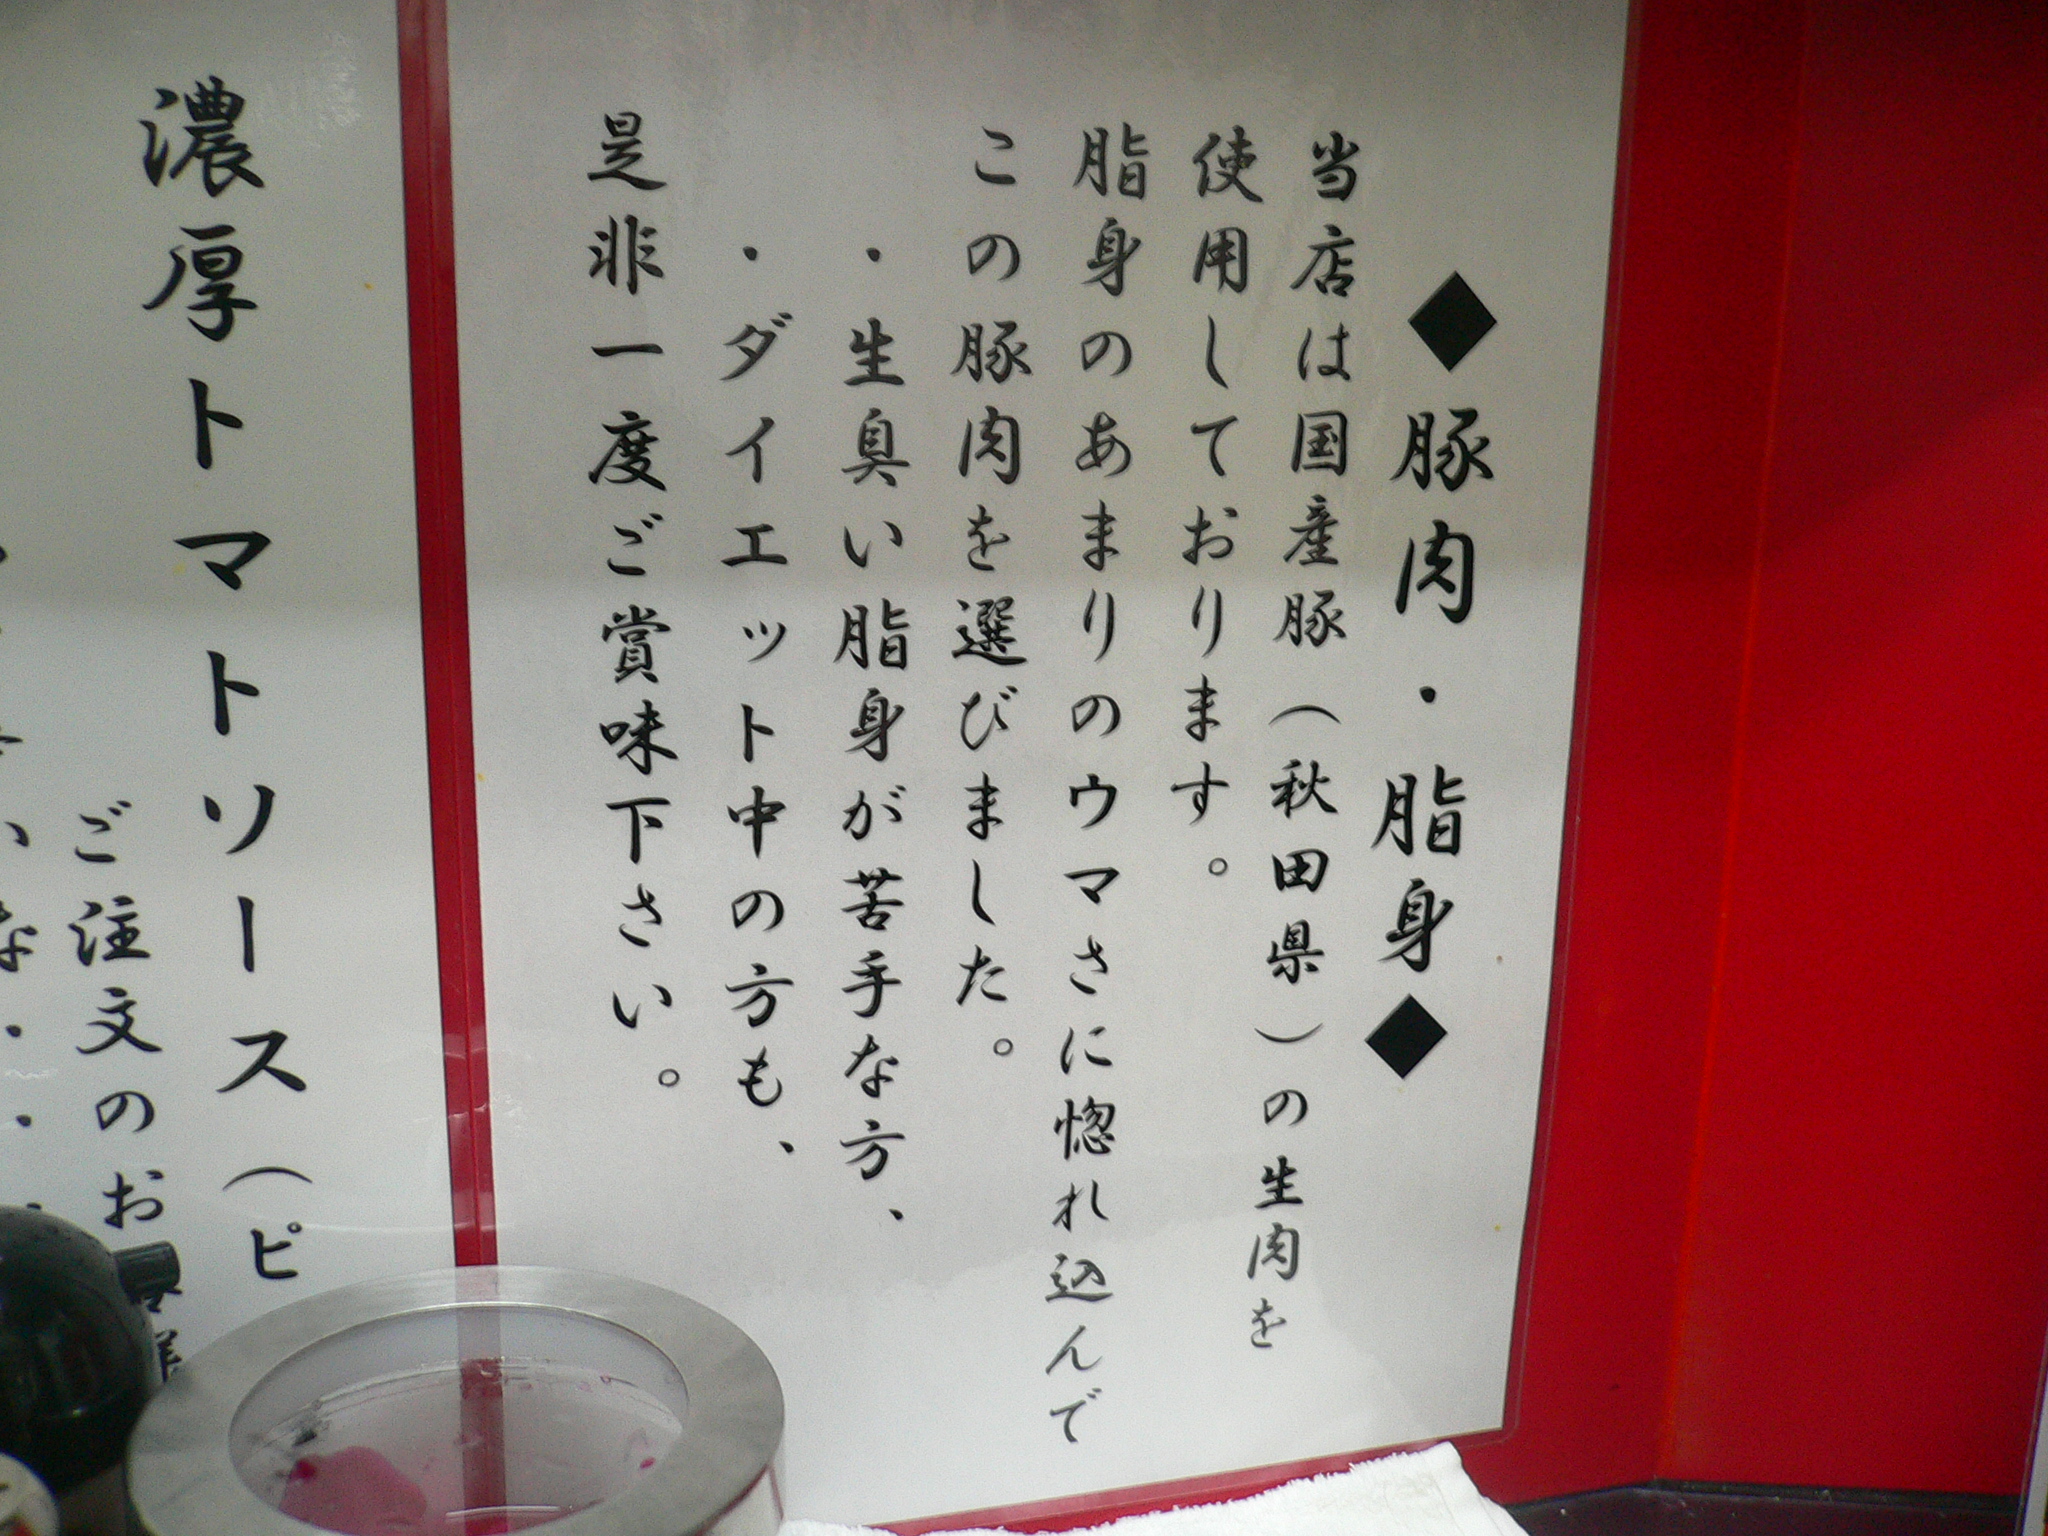 ◆豚肉・脂身◆
当店は国産豚（秋田県）の生肉を
使用しております。
脂身のあまりのウマさに惚れ込んで
この豚肉を選びました。
・生臭い脂身が苦手な方、
・ダイエット中の方も、
是非一度ご賞味下さい。
濃厚トマトソース（ピ
ご注文のお客様